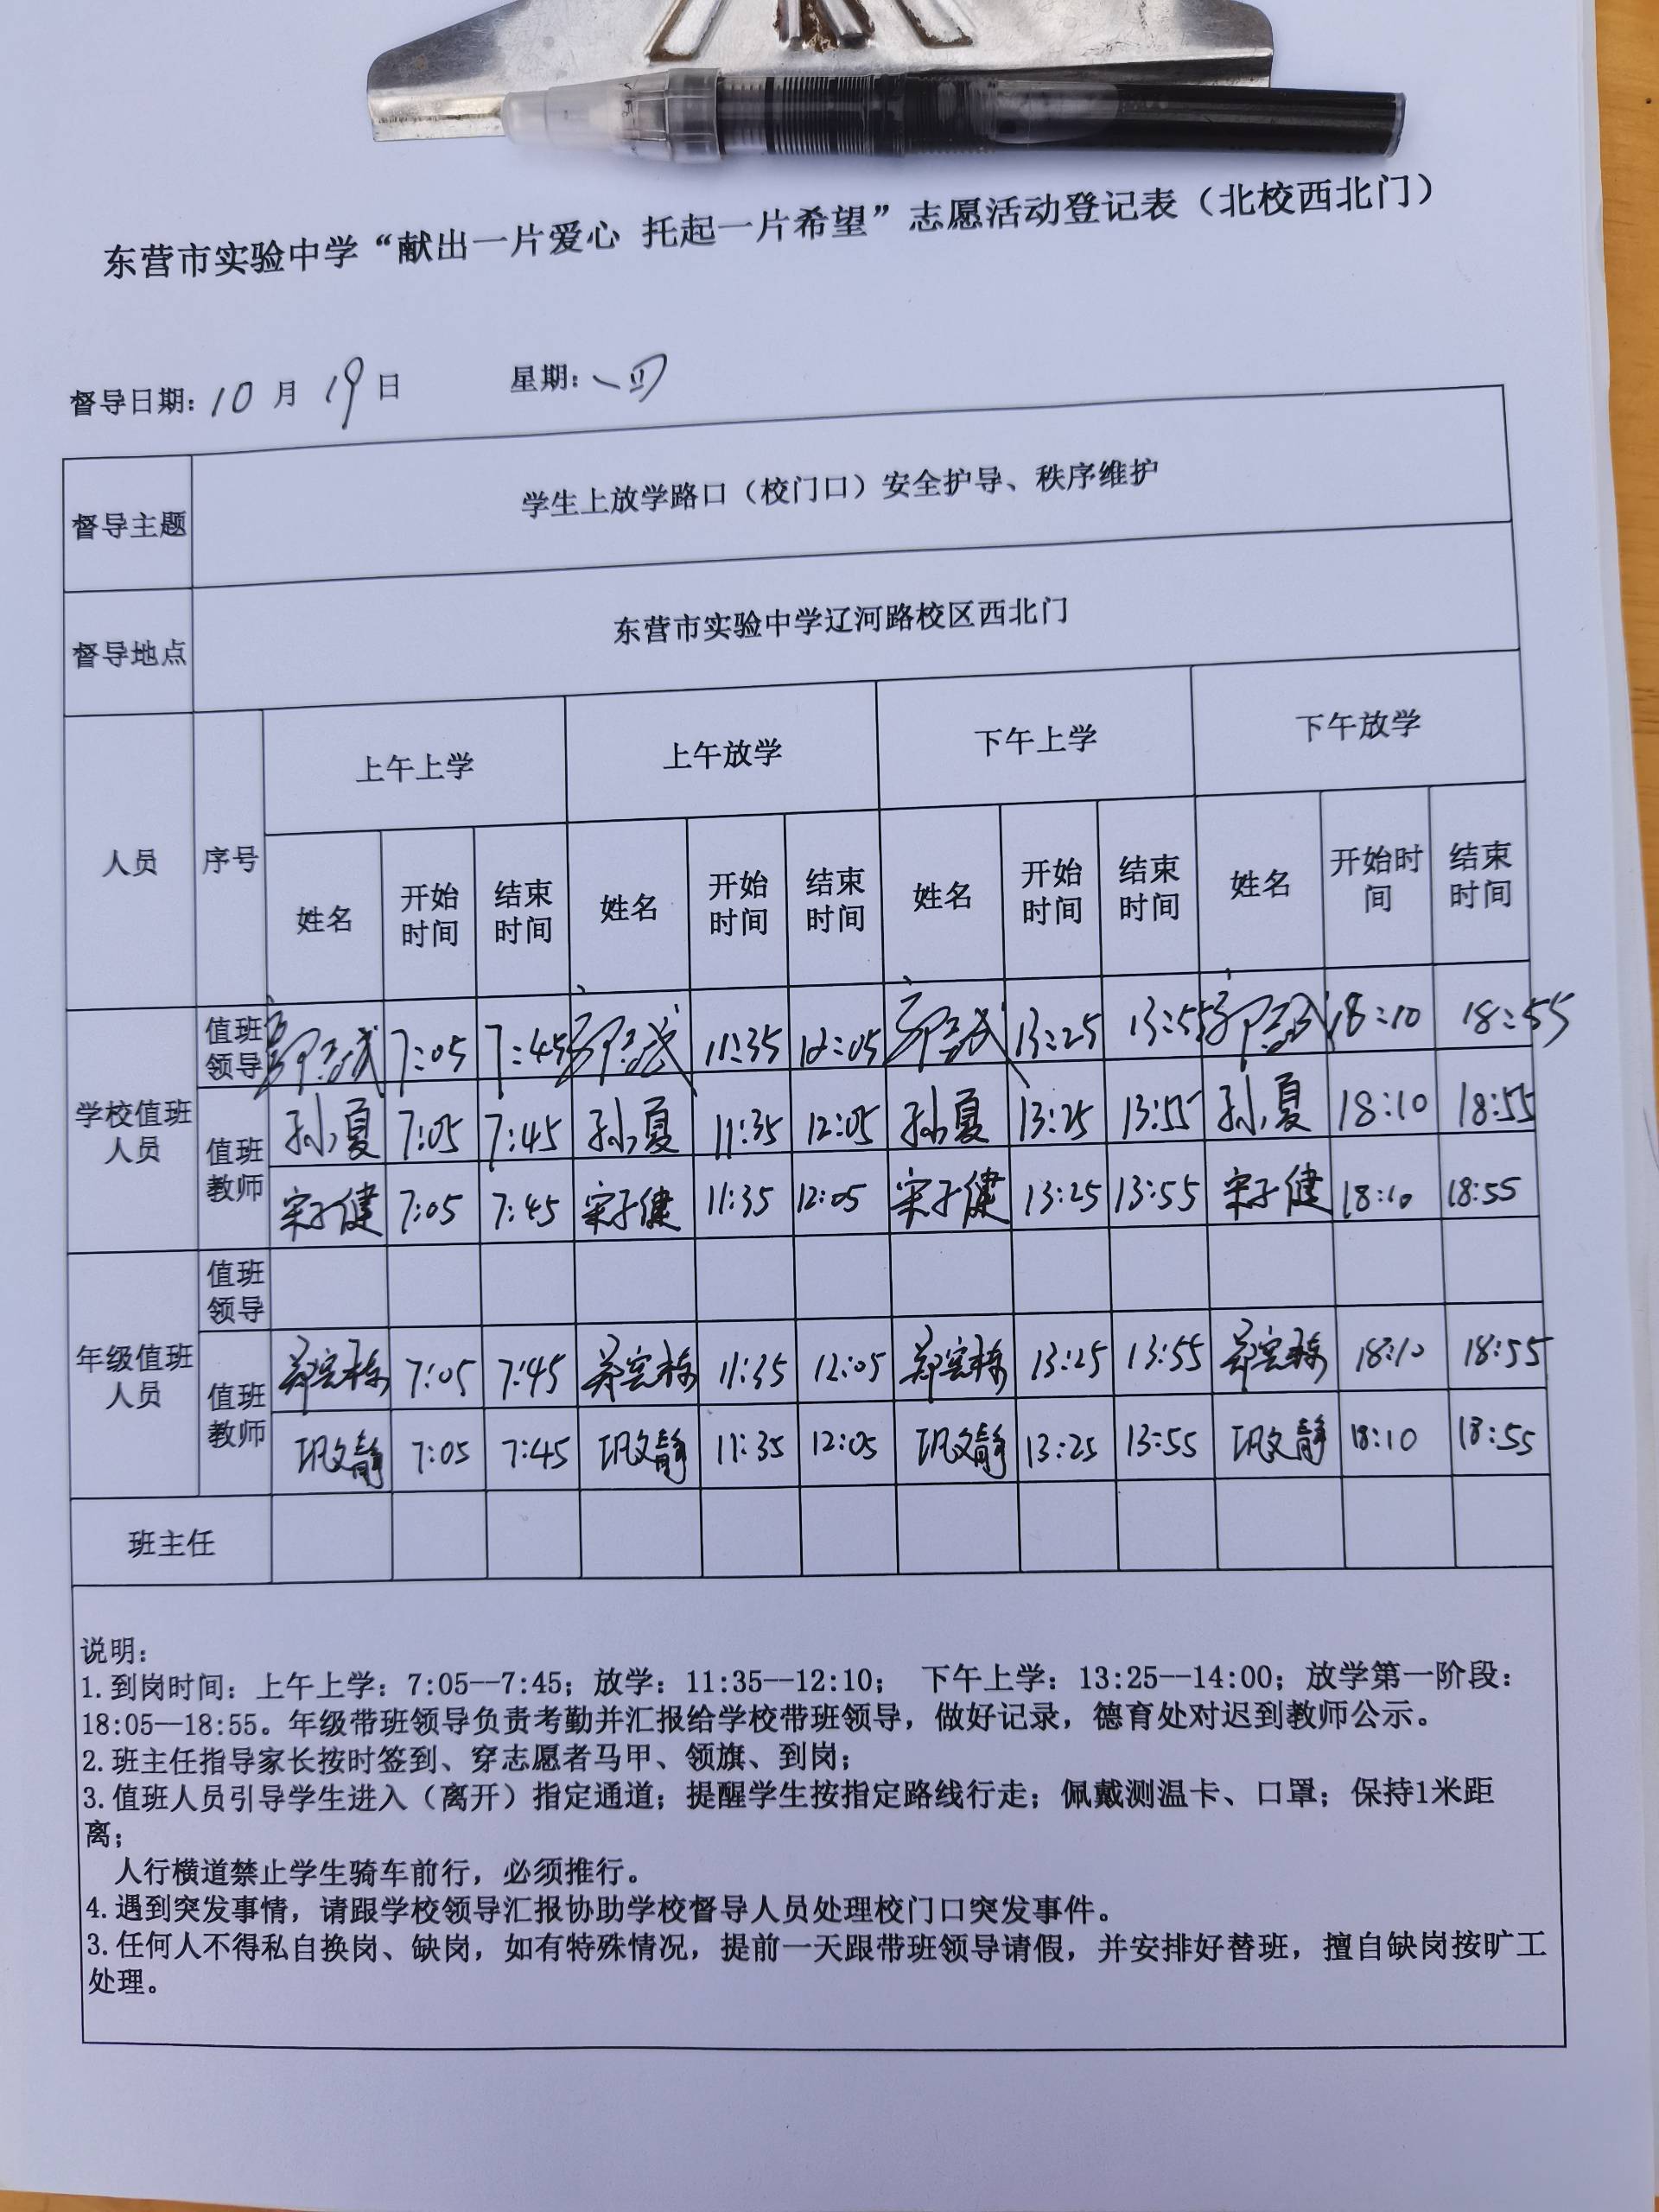 东营市实验中学“献出一片爱心 托起一片希望”志愿活动登记表（北校西北门）
督导日期：10月19日 星期：四
督导主题 学生上放学路口（校门口）安全护导、秩序维护
督导地点 东营市实验中学辽河路校区西北门
人员 序号 上午上学 上午放学 下午上学 下午放学
姓名 开始时间 结束时间 姓名 开始时间 结束时间 姓名 开始时间 结束时间 姓名 开始时间 结束时间
学校值班人员 值班领导 7:05 7:45 11:35 12:05 13:25 13:55 18:10 18:55
值班教师 孙夏 7:05 7:45 孙夏 11:35 12:05 孙夏 13:25 13:55 孙夏 18:10 18:55
宋子健 7:05 7:45 宋子健 11:35 12:05 宋子健 13:25 13:55 宋子健 18:10 18:55
年级值班人员 值班领导
值班教师 郑宪栋 7:05 7:45 郑宪栋 11:35 12:05 郑宪栋 13:25 13:55 郑宪栋 18:10 18:55
巩文静 7:05 7:45 巩文静 11:35 12:05 巩文静 13:25 13:55 巩文静 18:10 18:55
班主任
说明：
1.到岗时间：上午上学：7:05--7:45；放学：11:35--12:10； 下午上学：13:25--14:00；放学第一阶段：
18:05--18:55。年级带班领导负责考勤并汇报给学校带班领导，做好记录，德育处对迟到教师公示。
2.班主任指导家长按时签到、穿志愿者马甲、领旗、到岗；
3.值班人员引导学生进入（离开）指定通道；提醒学生按指定路线行走；佩戴测温卡、口罩；保持1米距
离；
人行横道禁止学生骑车前行，必须推行。
4.遇到突发事情，请跟学校领导汇报协助学校督导人员处理校门口突发事件。
3.任何人不得私自换岗、缺岗，如有特殊情况，提前一天跟带班领导请假，并安排好替班，擅自缺岗按旷工
处理。